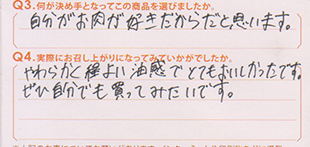 Q3.何が決め手となってこの商品を選びましたか。
自分がお肉が好きだからだと思います。
Q4.実際にお召し上がりになってみていかがでしたか。
やわらかく程よい油感でとてもおいしかったです。
ぜひ自分でも買ってみたいです。